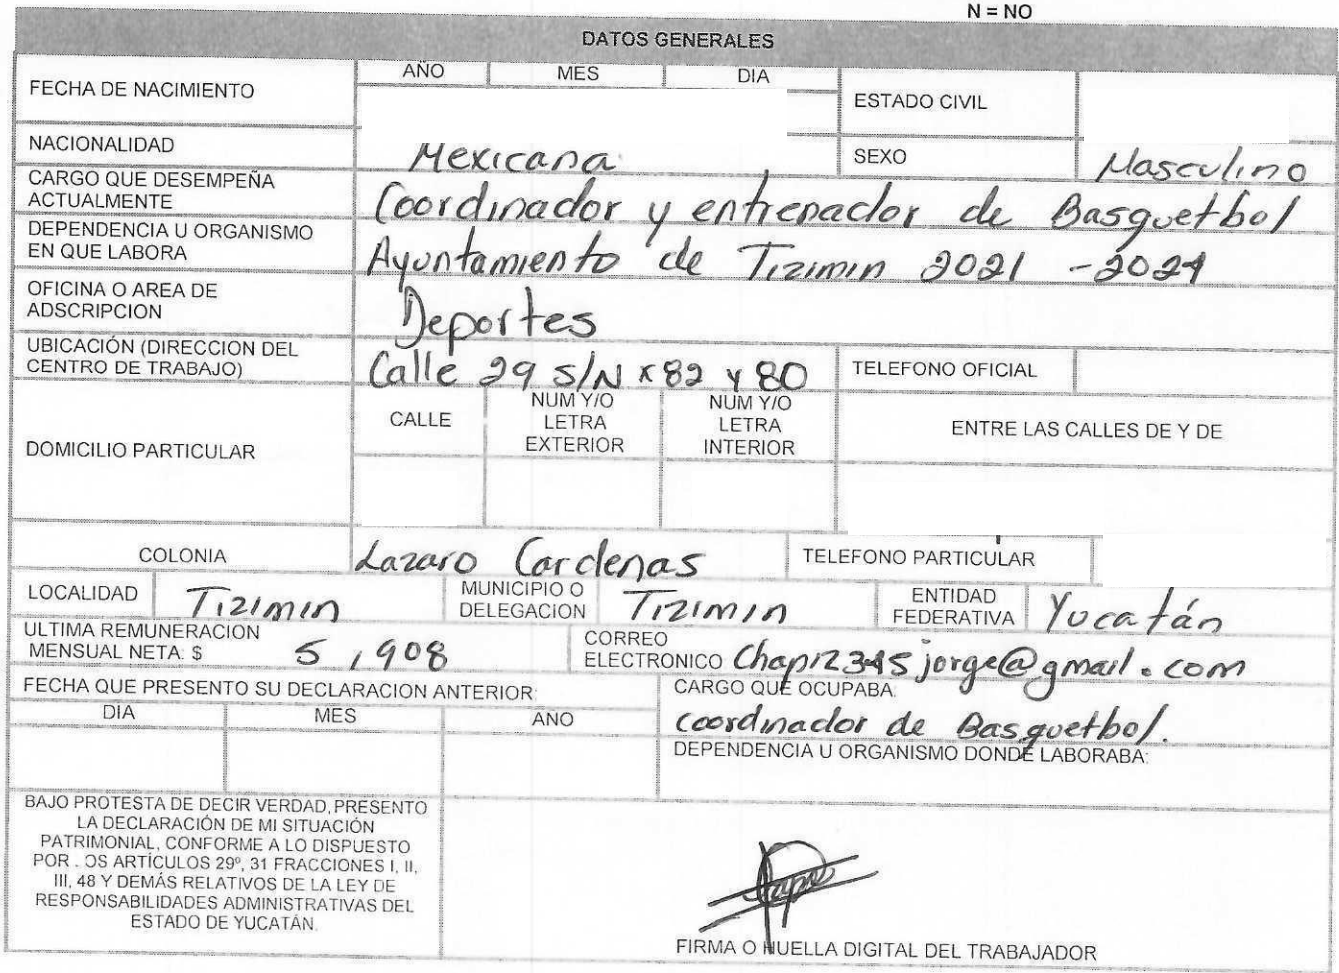 N = NO
DATOS GENERALES
FECHA DE NACIMIENTO
AÑO MES DIA
ESTADO CIVIL
NACIONALIDAD Mexicana SEXO Masculino
CARGO QUE DESEMPEÑA
ACTUALMENTE
Coordinador y entrenador de Basquetbol
DEPENDENCIA U ORGANISMO
EN QUE LABORA
Ayuntamiento de Tizimin 2021 - 2024
OFICINA O AREA DE
ADSCRIPCION
Deportes
UBICACIÓN (DIRECCION DEL
CENTRO DE TRABAJO)
Calle 29 S/N x 82 y 80
TELEFONO OFICIAL
DOMICILIO PARTICULAR
CALLE
NUM Y/O
LETRA
EXTERIOR
NUM Y/O
LETRA
INTERIOR
ENTRE LAS CALLES DE Y DE
COLONIA Lazaro Cardenas TELEFONO PARTICULAR
LOCALIDAD Tizimin
MUNICIPIO O
DELEGACION
Tizimin
ENTIDAD
FEDERATIVA
Yucatán
ULTIMA REMUNERACION
MENSUAL NETA: $ 5,908
CORREO
ELECTRONICO Chapi2345jorge@gmail.com
FECHA QUE PRESENTO SU DECLARACION ANTERIOR:
DIA MES ANO
CARGO QUE OCUPABA:
coordinador de Basquetbol.
DEPENDENCIA U ORGANISMO DONDE LABORABA:
BAJO PROTESTA DE DECIR VERDAD, PRESENTO
LA DECLARACIÓN DE MI SITUACIÓN
PATRIMONIAL, CONFORME A LO DISPUESTO
POR . OS ARTÍCULOS 29º, 31 FRACCIONES I, II,
III, 48 Y DEMÁS RELATIVOS DE LA LEY DE
RESPONSABILIDADES ADMINISTRATIVAS DEL
ESTADO DE YUCATÁN.
FIRMA O HUELLA DIGITAL DEL TRABAJADOR